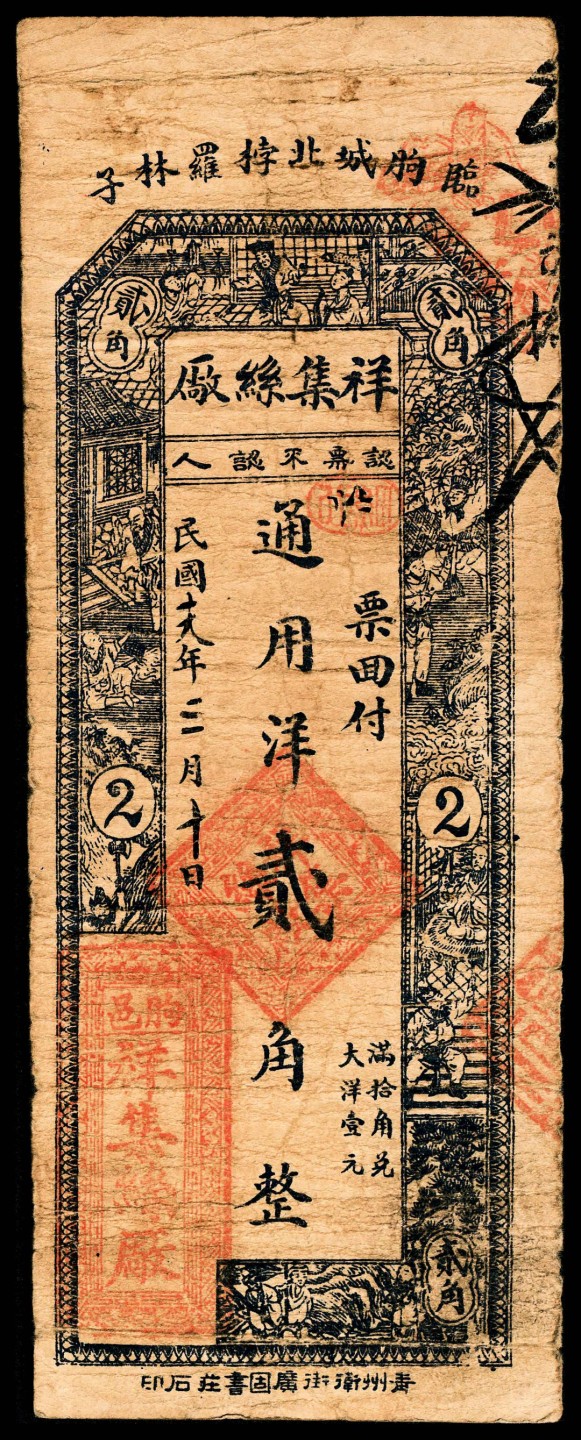 臨朐城北桲羅林子
貳角
貳角
祥集絲廠
認票不認人
票囬付
滿拾角兌
大洋壹元
通用洋貳角整
民國十八年三月十日
2
2
朐邑
祥集絲廠
貳角
青州衛街廣固書莊石印